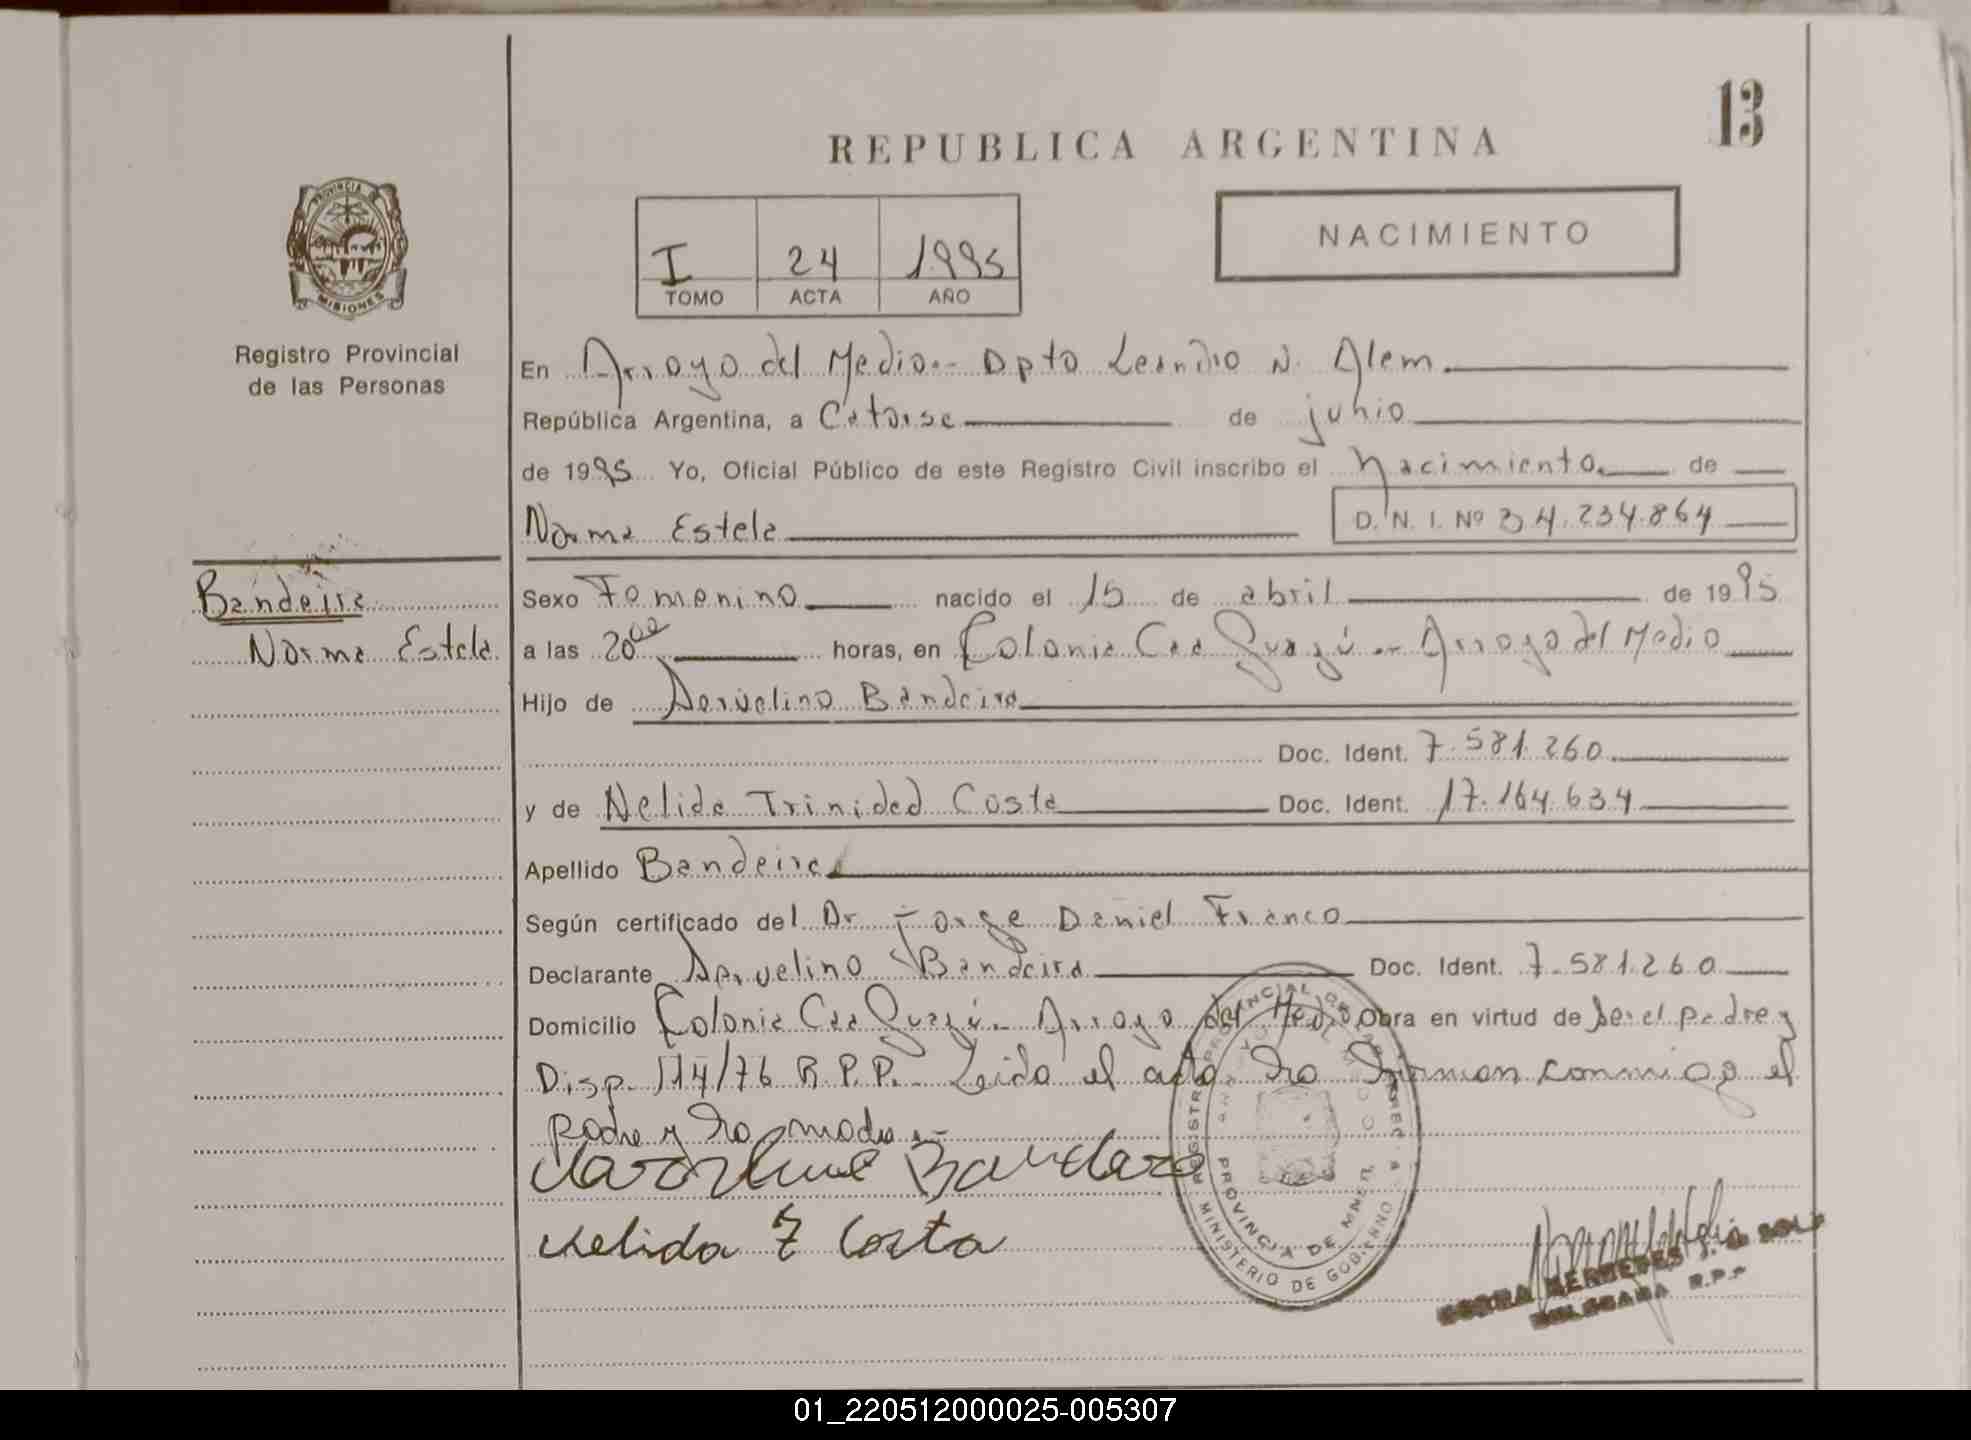 13
REPUBLICA ARGENTINA
PROVINCIA DE
MISIONES
Registro Provincial
de las Personas
I 24 1995
TOMO ACTA AÑO
NACIMIENTO
En Arroyo del Medio.- Dpto Leandro N. Alem
República Argentina, a Catorse de junio
de 1995 Yo, Oficial Público de este Registro Civil inscribo el Nacimiento de
Norma Estela D. N. I. Nº 34.234.864
Bandeira
Norma Estela
Sexo Femenino nacido el 15 de abril de 1995
a las 20 00 horas, en Colonia Caa Guazú.- Arroyo del Medio
Hijo de Dorvelino Bandeira
Doc. Ident. 7.581.260
y de Nelida Trinidad Costa Doc. Ident. 17.164.634
Apellido Bandeira
Según certificado del Dr Jorge Daniel Franco
Declarante Dorvelino Bandeira Doc. Ident. 7.581.260
Domicilio Colonia Caa Guazú.- Arroyo del Medio Obra en virtud de Ser el padre y
Disp. 114/76 R.P.P.- Leida el acta la firman conmigo el
padre y la madre.-
Bandera
Nelida T Costa
REGISTRO PROVINCIAL DE LAS PERSONAS
MINISTERIO DE GOBIERNO
PROVINCIA DE
MERCEDES
DELEGADA R.P.P
01_220512000025-005307